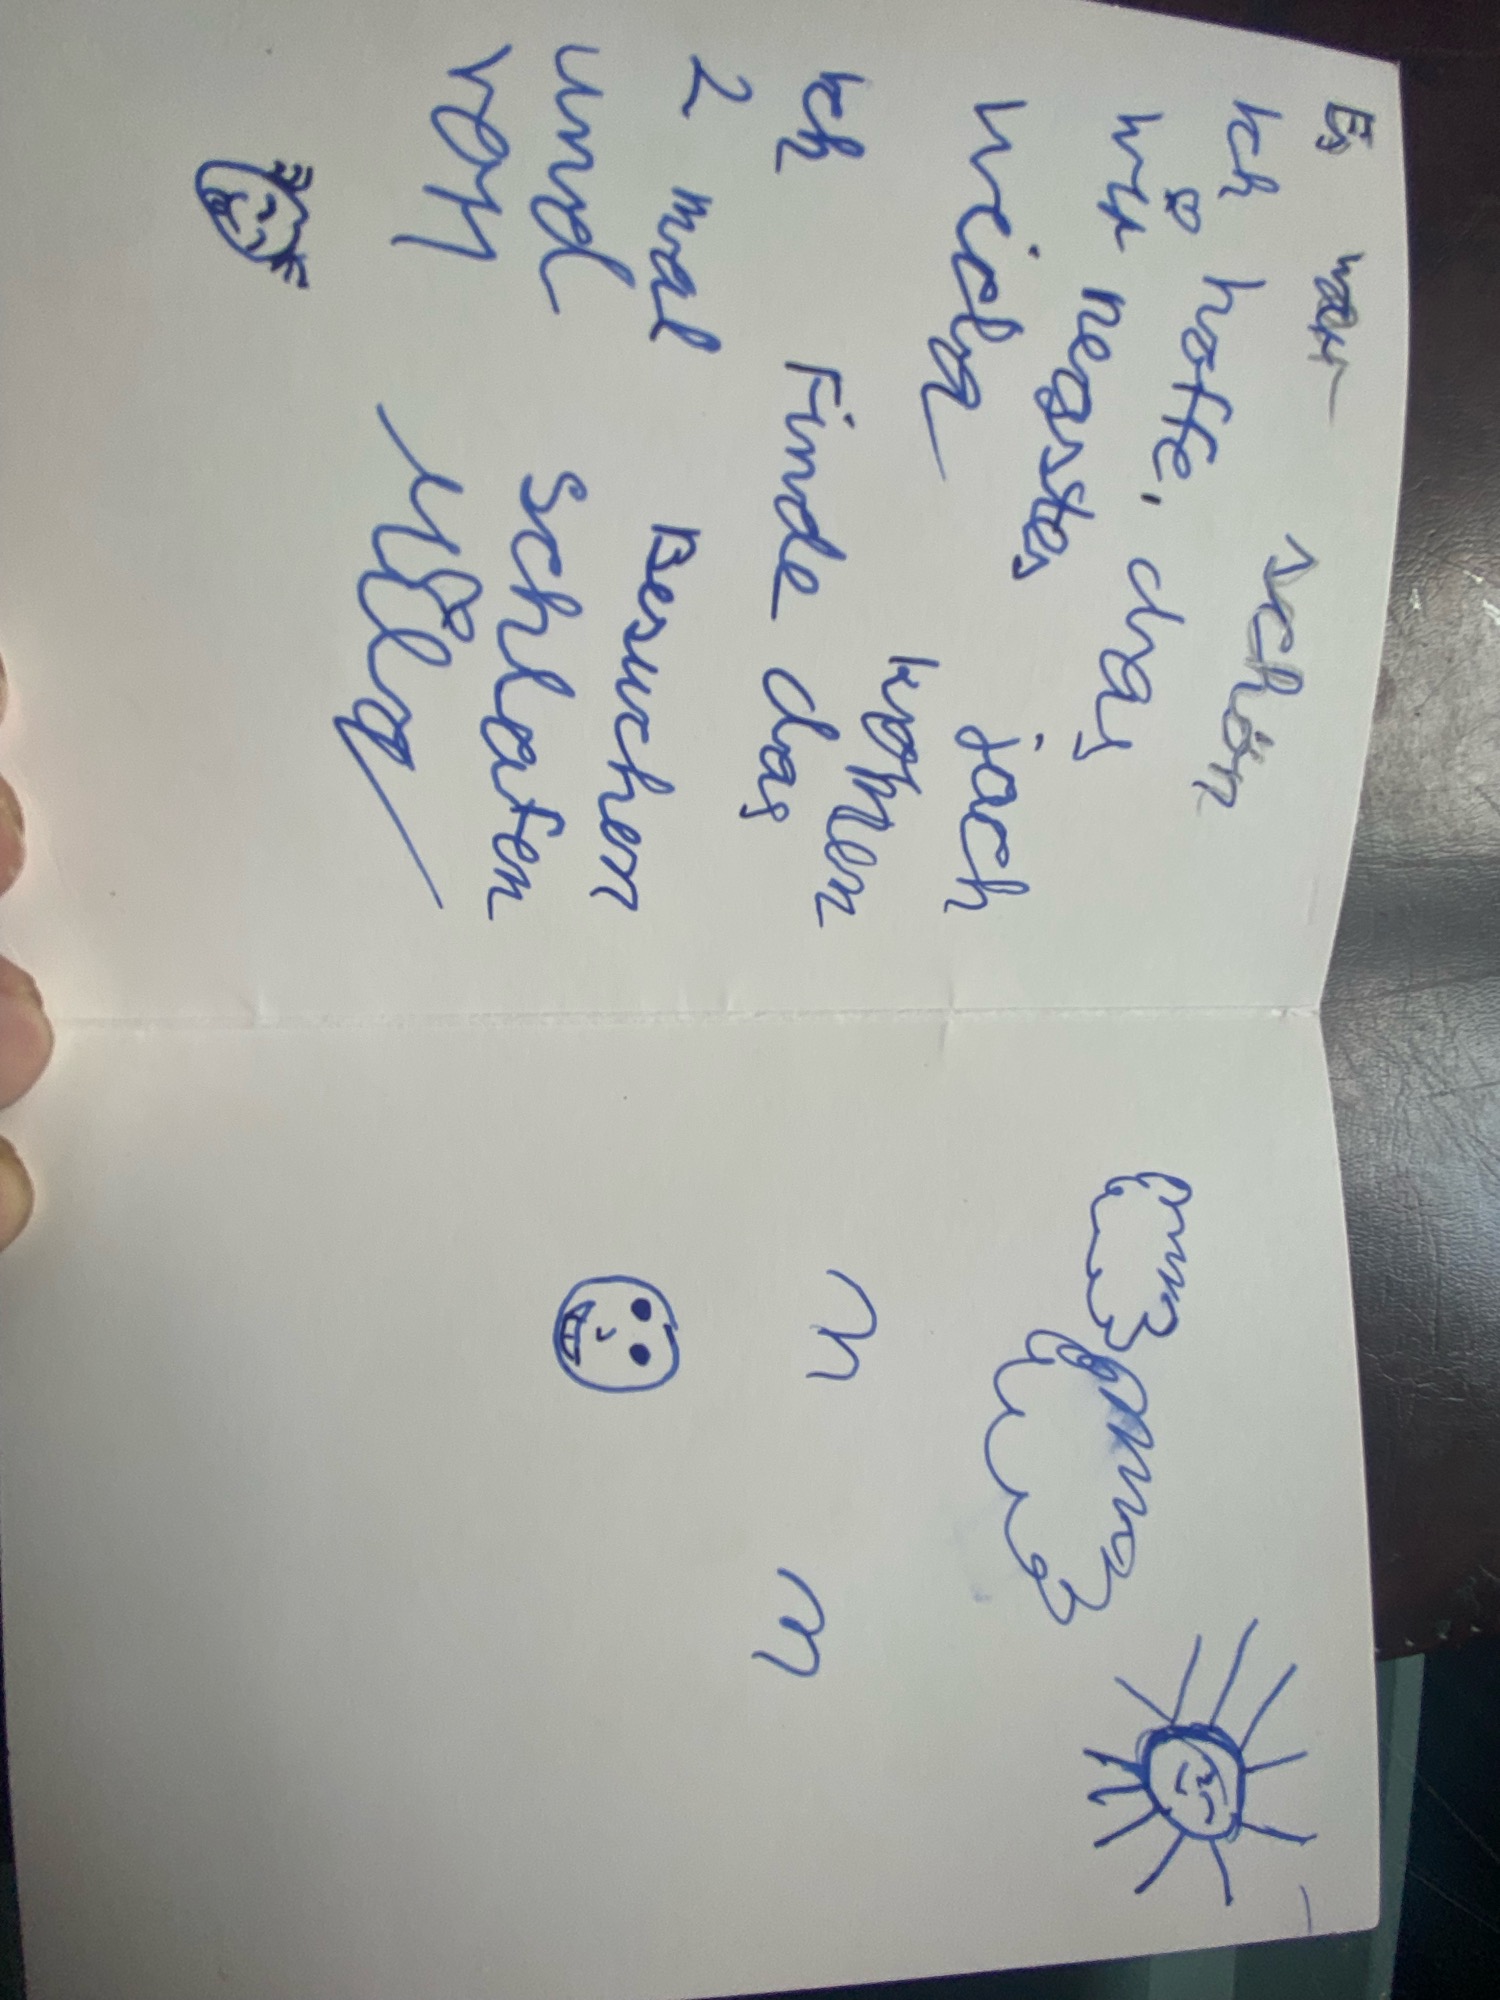 Es war schön
Ich hoffe, das
wir neastes jach
wida kommen
Ich Finde das
2 mal Besuchen
und schlafen
von Mila